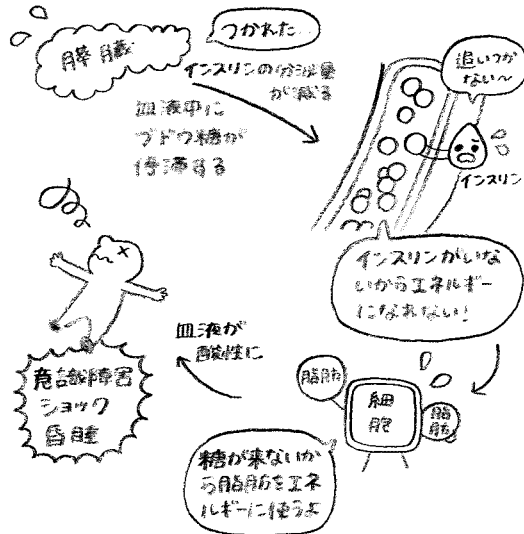 膵臓
つかれた…
インスリンの分泌量
が減る
血液中に
ブドウ糖が
停滞する
追いつか
ない〜
インスリン
インスリンがいな
いからエネルギー
になれない!
脂肪
細
胞
脂
肪
糖が来ないか
ら脂肪をエネ
ルギーに使うよ
血液が
酸性に
意識障害
ショック
昏睡